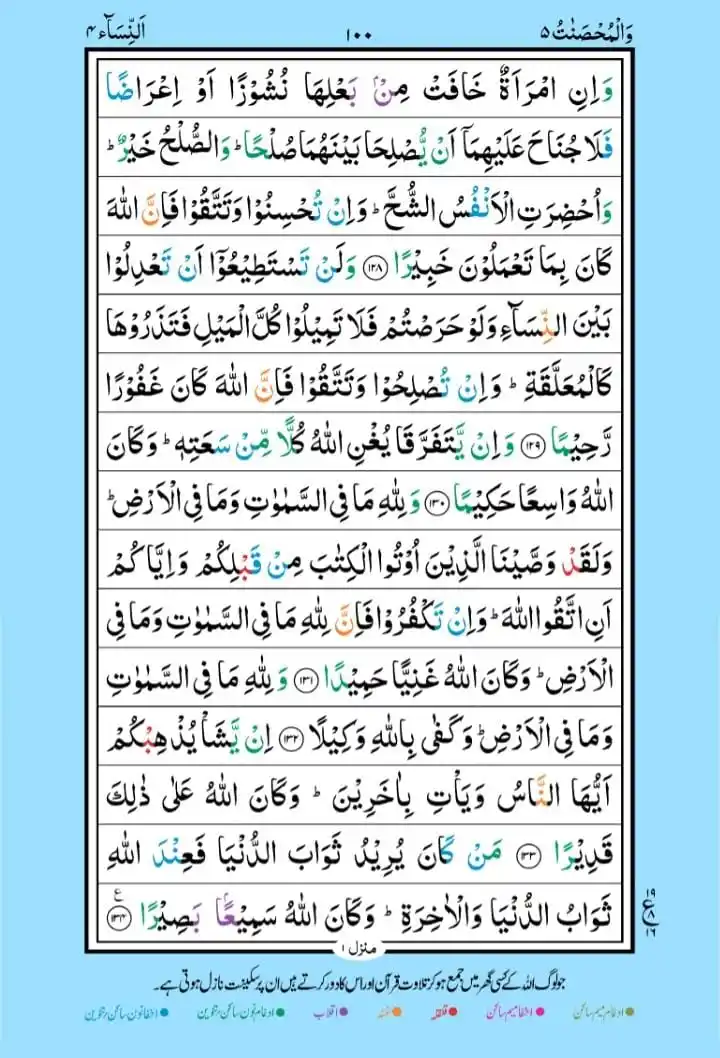 وَالْمُحْصَنٰتُ ۵ ۱۰۰ اَلنِّسَآء ۴
وَاِنِ امْرَاَةٌ خَافَتْ مِنْۢ بَعْلِهَا نُشُوْزًا اَوْ اِعْرَاضًا
فَلَا جُنَاحَ عَلَيْهِمَاۤ اَنْ يُّصْلِحَا بَيْنَهُمَا صُلْحًا ؕ وَالصُّلْحُ خَيْرٌ ؕ
وَاُحْضِرَتِ الْاَنْفُسُ الشُّحَّ ؕ وَاِنْ تُحْسِنُوْا وَتَتَّقُوْا فَاِنَّ اللّٰهَ
كَانَ بِمَا تَعْمَلُوْنَ خَبِيْرًا ۱۲۸ وَلَنْ تَسْتَطِيْعُوْۤا اَنْ تَعْدِلُوْا
بَيْنَ النِّسَآءِ وَلَوْ حَرَصْتُمْ فَلَا تَمِيْلُوْا كُلَّ الْمَيْلِ فَتَذَرُوْهَا
كَالْمُعَلَّقَةِ ؕ وَاِنْ تُصْلِحُوْا وَتَتَّقُوْا فَاِنَّ اللّٰهَ كَانَ غَفُوْرًا
رَّحِيْمًا ۱۲۹ وَاِنْ يَّتَفَرَّقَا يُغْنِ اللّٰهُ كُلًّا مِّنْ سَعَتِهٖ ؕ وَكَانَ
اللّٰهُ وَاسِعًا حَكِيْمًا ۱۳۰ وَلِلّٰهِ مَا فِى السَّمٰوٰتِ وَمَا فِى الْاَرْضِ ؕ
وَلَقَدْ وَصَّيْنَا الَّذِيْنَ اُوْتُوا الْكِتٰبَ مِنْ قَبْلِكُمْ وَاِيَّاكُمْ
اَنِ اتَّقُوا اللّٰهَ ؕ وَاِنْ تَكْفُرُوْا فَاِنَّ لِلّٰهِ مَا فِى السَّمٰوٰتِ وَمَا فِى
الْاَرْضِ ؕ وَكَانَ اللّٰهُ غَنِيًّا حَمِيْدًا ۱۳۱ وَلِلّٰهِ مَا فِى السَّمٰوٰتِ
وَمَا فِى الْاَرْضِ ؕ وَكَفٰى بِاللّٰهِ وَكِيْلًا ۱۳۲ اِنْ يَّشَاْ يُذْهِبْكُمْ
اَيُّهَا النَّاسُ وَيَاْتِ بِاٰخَرِيْنَ ؕ وَكَانَ اللّٰهُ عَلٰى ذٰلِكَ
قَدِيْرًا ۱۳۳ مَنْ كَانَ يُرِيْدُ ثَوَابَ الدُّنْيَا فَعِنْدَ اللّٰهِ
ثَوَابُ الدُّنْيَا وَالْاٰخِرَةِ ؕ وَكَانَ اللّٰهُ سَمِيْعًۢا بَصِيْرًا ۱۳۴ ع
۱۹
ع ۸
۱۶
منزل ۱
جو لوگ اللہ کے کسی گھر میں جمع ہو کر تلاوت قرآن اور اس کا دور کرتے ہیں ان پر سکینت نازل ہوتی ہے۔
ادغام میم ساکن اخفا میم ساکن قلقلہ غنہ اقلاب ادغام نون ساکن، تنوین اخفا نون ساکن، تنوین